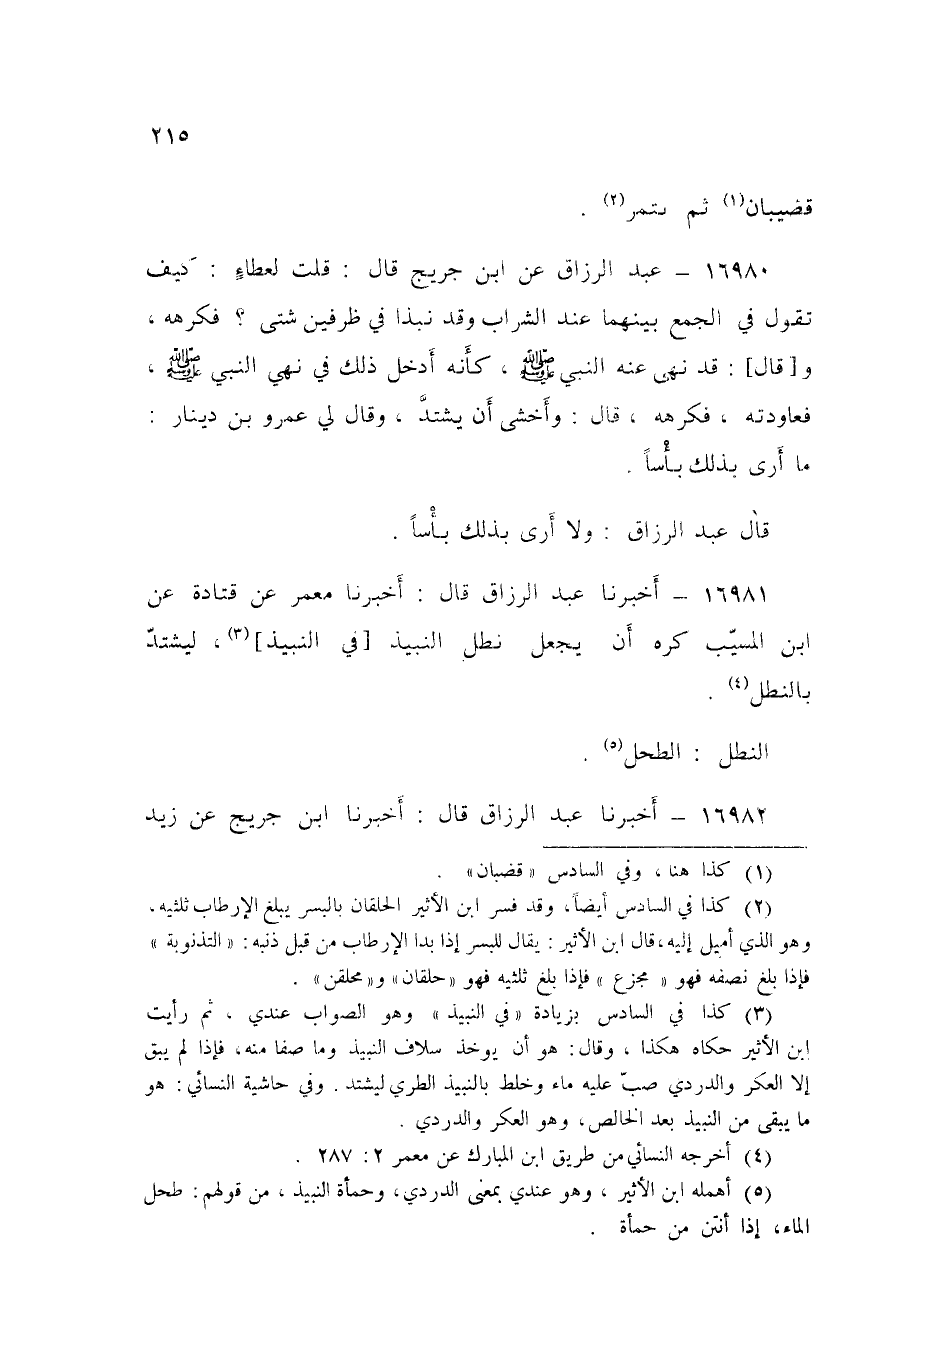 ٢١٥
قضيبان(١) ثم بتمر(٢) .
١٦٩٨٠ – عبد الرزاق عن ابن جريج قال : قلت لعطاءٍ : كيف
تقول في الجمع بينهما عند الشراب وقد نبذا في ظرفين شتى ؟ فكرهه ،
و[قال] : قد نهى عنه النبي ﷺ ، كأَنه أَدخل ذلك في نهي النبي ﷺ ،
فعاودته ، فكرهه ، قال : وأَخشى أَن يشتدَّ ، وقال لي عمرو بن دينار :
ما أَرى بذلك بأْساً .
قال عبد الرزاق : ولا أَرى بذلك بأْساً .
١٦٩٨١ – أَخبرنا عبد الرزاق قال : أَخبرنا معمر عن قتادة عن
ابن المسيّب كره أَن يجعل نطل النبيذ [في النبيذ](٣) ، ليشتدّ
بالنطل(٤) .
النطل : الطحل(٥) .
١٦٩٨٢ – أَخبرنا عبد الرزاق قال : أَخبرنا ابن جريج عن زيد
(١) كذا هنا ، وفي السادس « قضبان» .
(٢) كذا في السادس أيضاً، وقد فسر ابن الأثير الحلقان بالبسر يبلغ الإرطاب ثلثيه،
وهو الذي أميل إليه،قال ابن الأثير : يقال للبسر إذا بدا الإرطاب من قبل ذنبه: « التذنوبة »
فإذا بلغ نصفه فهو « مجزع » فإذا بلغ ثلثيه فهو «حلقان» و«محلقن» .
(٣) كذا في السادس بزيادة «في النبيذ» وهو الصواب عندي ، ثم رأيت
ابن الأثير حكاه هكذا ، وقال: هو أن يوخذ سلاف النبيذ وما صفا منه، فإذا لم يبق
إلا العكر والدردي صبّ عليه ماء وخلط بالنبيذ الطري ليشتد . وفي حاشية النسائي: هو
ما يبقى من النبيذ بعد الخالص، وهو العكر والدردي .
(٤) أخرجه النسائي من طريق ابن المبارك عن معمر ٢: ٢٨٧ .
(٥) أهمله ابن الأثير ، وهو عندي بمعنى الدردي، وحمأة النبيذ ، من قولهم: طحل
الماء، إذا أنتن من حمأة .